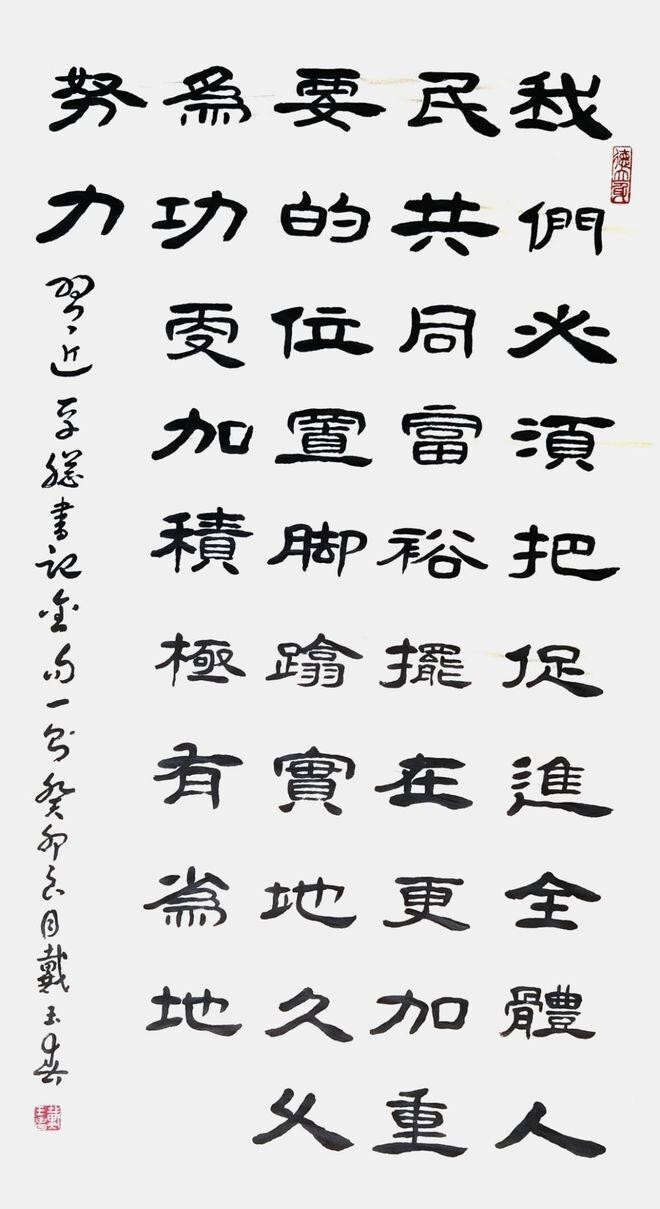 我們必須把促進全體人
民共同富裕擺在更加重
要的位置脚蹋實地久久
爲功更加積極有爲地
努力
習近平總書記金句一則癸卯月戴玉春